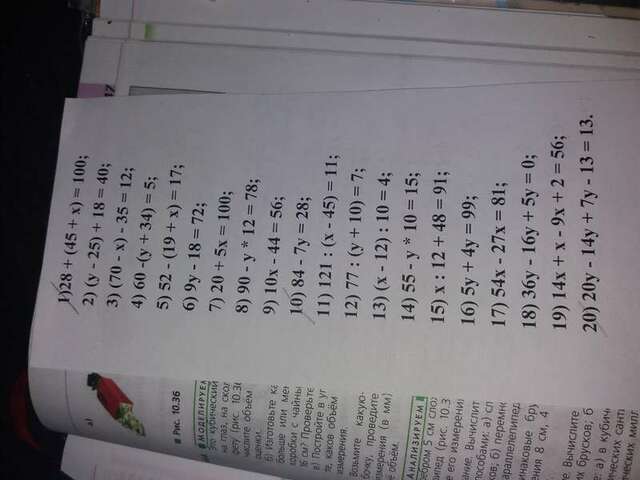 1)28 + (45 + x) = 100;
2) (y - 25) + 18 = 40;
3) (70 - x) - 35 = 12;
4) 60 -(y + 34) = 5;
5) 52 - (19 + x) = 17;
6) 9y - 18 = 72;
7) 20 + 5x = 100;
8) 90 - y * 12 = 78;
9) 10x - 44 = 56;
10) 84 - 7y = 28;
11) 121 : (x - 45) = 11;
12) 77 : (y + 10) = 7;
13) (x - 12) : 10 = 4;
14) 55 - y * 10 = 15;
15) x : 12 + 48 = 91;
16) 5y + 4y = 99;
17) 54x - 27x = 81;
18) 36y - 16y + 5y = 0;
19) 14x + x - 9x + 2 = 56;
20) 20y - 14y + 7y - 13 = 13.
а)
Рис. 10.36
МОДЕЛИРУЕМ
Это кубический
на глаз, на скол
фету (рис. 10.36
числите объём
оценки.
б) Изготовьте ка
больше или мен
коробки с чайны
16 см? Проверьте
в) Постройте в уг
те, каков объём
измерения.
Возьмите какую-
бочку, проведите
измерения (в мм)
её объём.
АНАЛИЗИРУЕМ
ребром 5 см слож
ипед (рис. 10.3
е его измерени
ание. Вычислит
пособами: а) сл
ков; б) перемно
араллелепипед
инаковые бру
ения 8 см, 4
ие. Вычислите
их брусков; б
е: а) в кубич
ических санти
ических милл